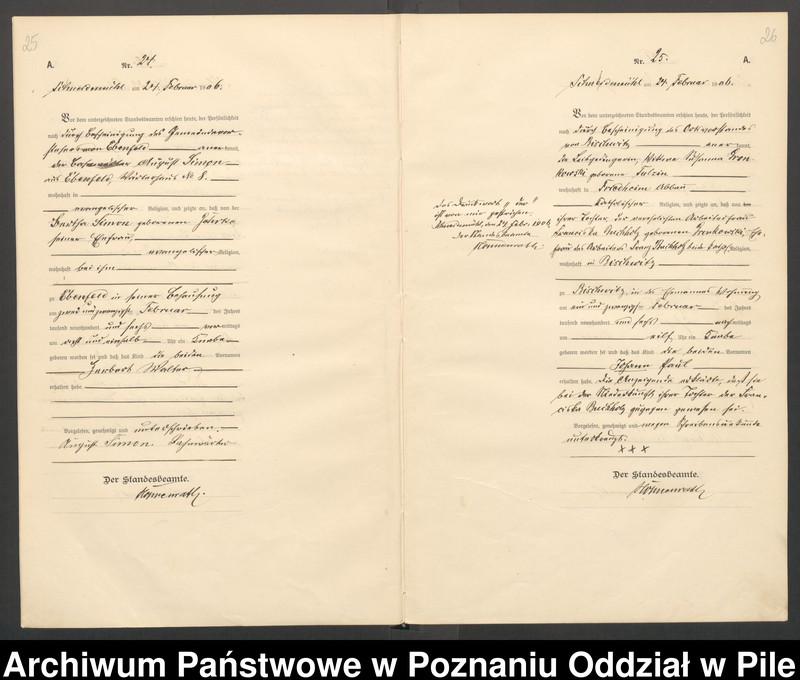 25
A.
Nr. 24.
Schneidemühl am 24. Februar 1906.
Vor dem unterzeichneten Standesbeamten erschien heute, der Persönlichkeit
nach durch Bescheinigung des Gemeindevor-
stehers von Ebenfeld kannt,
der August Simon
aus Ebenfeld, No 8.
wohnhaft in
evangelischer Religion, und zeigte an, daß von der
Bertha Simon geborenen
seiner Ehefrau,
evangelischer Religion,
wohnhaft bei ihm
zu Ebenfeld in seiner Behausung
am zwei und zwanzigsten Februar des Jahres
tausend neunhundert und sechs vormittags
um und einhalb Uhr ein Knabe
geboren worden sei und daß das Kind die beiden Vornamen
Herbert Walter
erhalten habe.
Vorgelesen, genehmigt und unterschrieben.
August Simon.
Der Standesbeamte.
26
Nr. 25.
A.
Schneidemühl am 24. Februar 1906.
Vor dem unterzeichneten Standesbeamten erschien heute, der Persönlichkeit
nach durch Bescheinigung des Ortsvorstandes
von kannt,
die Witwe Susanna Fron-
kowski geborene
wohnhaft in Friedheim Abbau
katholischer Religion, und zeigte an, daß von der
ihrer Tochter, der verehelichten Arbeiterfrau
Franciska Buchholz geborenen Fronkowski, Ehe-
frau des Arbeiters Franz Buchholz beide kathol. Religion,
wohnhaft in
Das Druckwort „der“
ist von mir gestrichen.
Schneidemühl, den 24. Febr. 1906.
Der Standesbeamte
zu in des Ehemannes Wohnung
am ein und zwanzigsten Februar des Jahres
tausend neunhundert und sechs nachmittags
um elf Uhr ein Knabe
geboren worden sei und daß das Kind die beiden Vornamen
Johann Paul
erhalten habe. Die Anzeigende erklärte, daß sie
bei der Niederkunft ihrer Tochter der Fran-
ciska Buchholz zugegen gewesen sei.
Vorgelesen, genehmigt und wegen Schreibensunkunde
unterkreuzt.
+ + +
Der Standesbeamte.
Archiwum Państwowe w Poznaniu Oddział w Pile